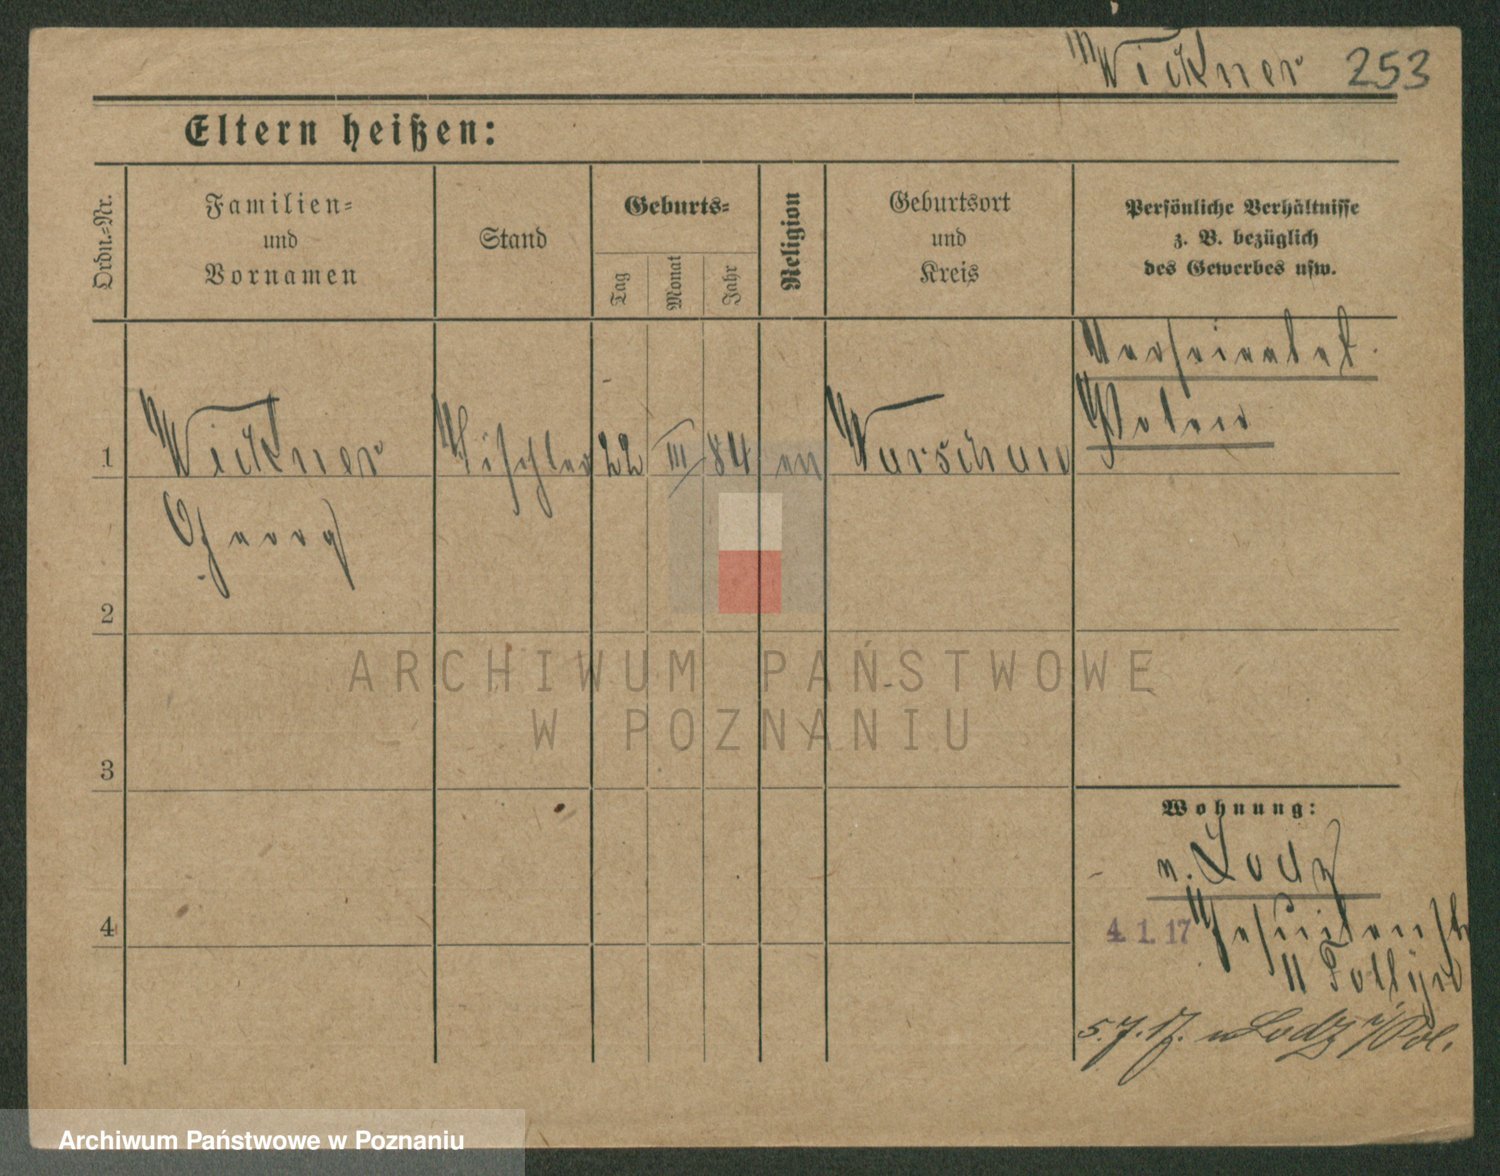 Wickner 253
Eltern heißen:
Ordn.-Nr.
Familien-
und
Vornamen
Stand
Geburts-
Tag
Monat
Jahr
Religion
Geburtsort
und
Kreis
Persönliche Verhältnisse
z. B. bezüglich
des Gewerbes usw.
Verheiratet.
Polen
1 Wickner Tischler 22 III 84 Warschau
Georg
2
3
4
Wohnung:
n. Lodz
4. 1. 17 Jesuitenstr
11
5.7.17. n Lodz i/Pol.
ARCHIWUM PAŃSTWOWE
W POZNANIU
Archiwum Państwowe w Poznaniu